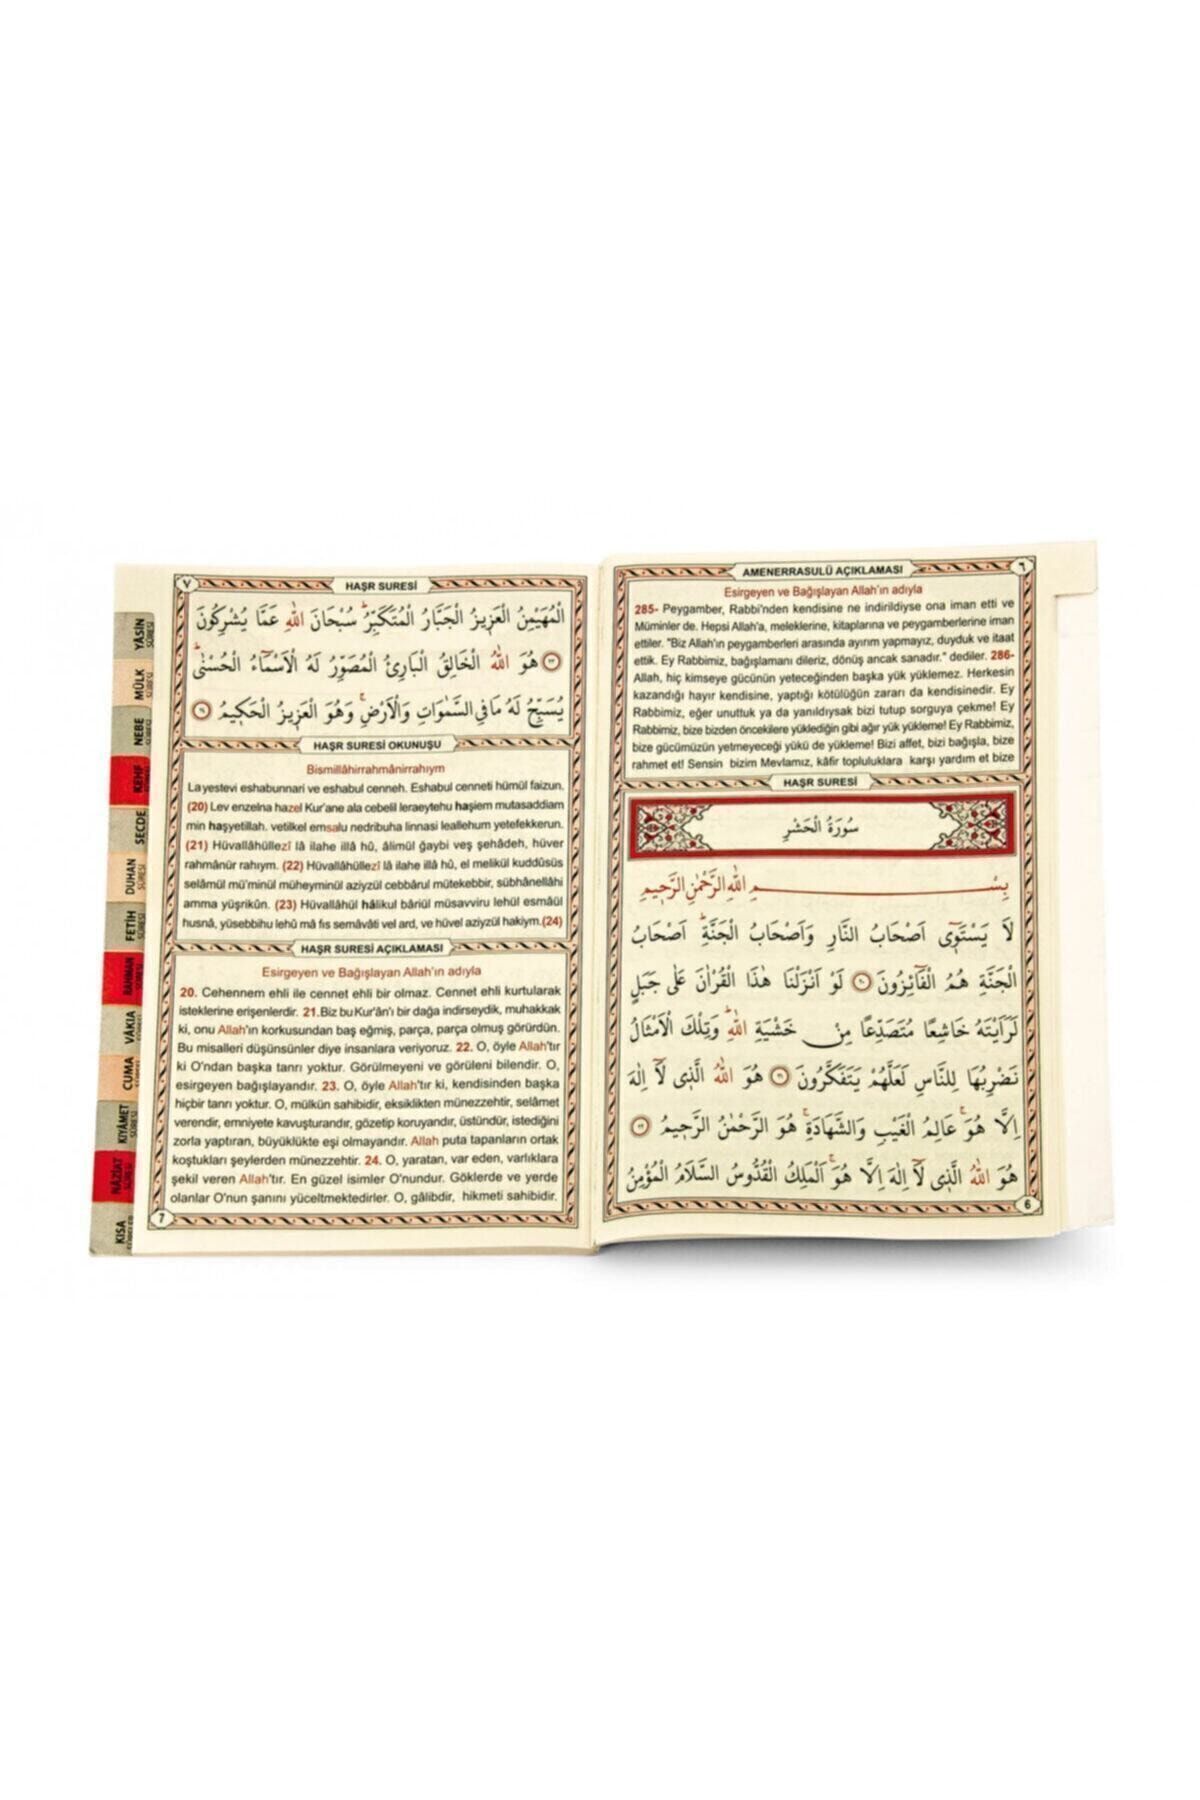 ٦
AMENERRASULÜ AÇIKLAMASI
Esirgeyen ve Bağışlayan Allah'ın adıyla
285- Peygamber, Rabbi'nden kendisine ne indirildiyse ona iman etti ve
Müminler de. Hepsi Allah'a, meleklerine, kitaplarına ve peygamberlerine iman
ettiler. "Biz Allah'ın peygamberleri arasında ayırım yapmayız, duyduk ve itaat
ettik. Ey Rabbimiz, bağışlamanı dileriz, dönüş ancak sanadır." dediler. 286-
Allah, hiç kimseye gücünün yeteceğinden başka yük yüklemez. Herkesin
kazandığı hayır kendisine, yaptığı kötülüğün zararı da kendisinedir. Ey
Rabbimiz, eğer unuttuk ya da yanıldıysak bizi tutup sorguya çekme! Ey
Rabbimiz, bize bizden öncekilere yüklediğin gibi ağır yük yükleme! Ey Rabbimiz,
bize gücümüzün yetmeyeceği yükü de yükleme! Bizi affet, bizi bağışla, bize
rahmet et! Sensin bizim Mevlamız, kâfir topluluklara karşı yardım et bize
HAŞR SURESİ
سُورَةُ الْحَشْرِ
بِسْــــمِ اللّٰهِ الرَّحْمٰنِ الرَّح۪يمِ
لَا يَسْتَو۪ٓي اَصْحَابُ النَّارِ وَاَصْحَابُ الْجَنَّةِۜ اَصْحَابُ
الْجَنَّةِ هُمُ الْفَٓائِزُونَ ﴿٢٠﴾ لَوْ اَنْزَلْنَا هٰذَا الْقُرْاٰنَ عَلٰى جَبَلٍ
لَرَاَيْتَهُ خَاشِعًا مُتَصَدِّعًا مِنْ خَشْيَةِ اللّٰهِۜ وَتِلْكَ الْاَمْثَالُ
نَضْرِبُهَا لِلنَّاسِ لَعَلَّهُمْ يَتَفَكَّرُونَ ﴿٢١﴾ هُوَ اللّٰهُ الَّذ۪ي لَٓا اِلٰهَ
اِلَّا هُوَۚ عَالِمُ الْغَيْبِ وَالشَّهَادَةِۚ هُوَ الرَّحْمٰنُ الرَّح۪يمُ ﴿٢٢﴾
هُوَ اللّٰهُ الَّذ۪ي لَٓا اِلٰهَ اِلَّا هُوَۚ اَلْمَلِكُ الْقُدُّوسُ السَّلَامُ الْمُؤْمِنُ
6
٧
HAŞR SURESİ
الْمُهَيْمِنُ الْعَز۪يزُ الْجَبَّارُ الْمُتَكَبِّرُۜ سُبْحَانَ اللّٰهِ عَمَّا يُشْرِكُونَ
﴿٢٣﴾ هُوَ اللّٰهُ الْخَالِقُ الْبَارِئُ الْمُصَوِّرُ لَهُ الْاَسْمَٓاءُ الْحُسْنٰىۜ
يُسَبِّحُ لَهُ مَا فِي السَّمٰوَاتِ وَالْاَرْضِۚ وَهُوَ الْعَز۪يزُ الْحَك۪يمُ ﴿٢٤﴾
HAŞR SURESİ OKUNUŞU
Bismillâhirrahmânirrahıym
La yestevi eshabunnari ve eshabul cenneh. Eshabul cenneti hümül faizun.
(20) Lev enzelna hazel Kur'ane ala cebelil leraeytehu haşiem mutasaddiam
min haşyetillah. vetilkel emsalu nedribuha linnasi leallehum yetefekkerun.
(21) Hüvallâhüllezî lâ ilahe illâ hû, âlimül ğaybi veş şehâdeh, hüver
rahmânür rahıym. (22) Hüvallâhüllezî lâ ilahe illâ hû, el melikül kuddûsüs
selâmül mü'minül müheyminül aziyzül cebbârul mütekebbir, sübhânellâhi
amma yüşrikûn. (23) Hüvallâhül hâlikul bâriül müsavviru lehül esmâül
husnâ, yüsebbihu lehû mâ fis semâvâti vel ard, ve hüvel aziyzül hakiym.(24)
HAŞR SURESİ AÇIKLAMASI
Esirgeyen ve Bağışlayan Allah'ın adıyla
20. Cehennem ehli ile cennet ehli bir olmaz. Cennet ehli kurtularak
isteklerine erişenlerdir. 21.Biz bu Kur'ân'ı bir dağa indirseydik, muhakkak
ki, onu Allah'ın korkusundan baş eğmiş, parça, parça olmuş görürdün.
Bu misalleri düşünsünler diye insanlara veriyoruz. 22. O, öyle Allah'tır
ki O'ndan başka tanrı yoktur. Görülmeyeni ve görüleni bilendir. O,
esirgeyen bağışlayandır. 23. O, öyle Allah'tır ki, kendisinden başka
hiçbir tanrı yoktur. O, mülkün sahibidir, eksiklikten münezzehtir, selâmet
verendir, emniyete kavuşturandır, gözetip koruyandır, üstündür, istediğini
zorla yaptıran, büyüklükte eşi olmayandır. Allah puta tapanların ortak
koştukları şeylerden münezzehtir. 24. O, yaratan, var eden, varlıklara
şekil veren Allah'tır. En güzel isimler O'nundur. Göklerde ve yerde
olanlar O'nun şanını yüceltmektedirler. O, gâlibdir, hikmeti sahibidir.
7
YÂSİN
SÛRESİ
MÜLK
SÛRESİ
NEBE
KEHF
SECDE
DUHAN
SÛRESİ
FETİH
SÛRESİ
RAHMAN
SÛRESİ
VÂKIA
CUMA
KIYÂMET
SÛRESİ
NÂZİAT
SÛRESİ
KISA
SÛRELER